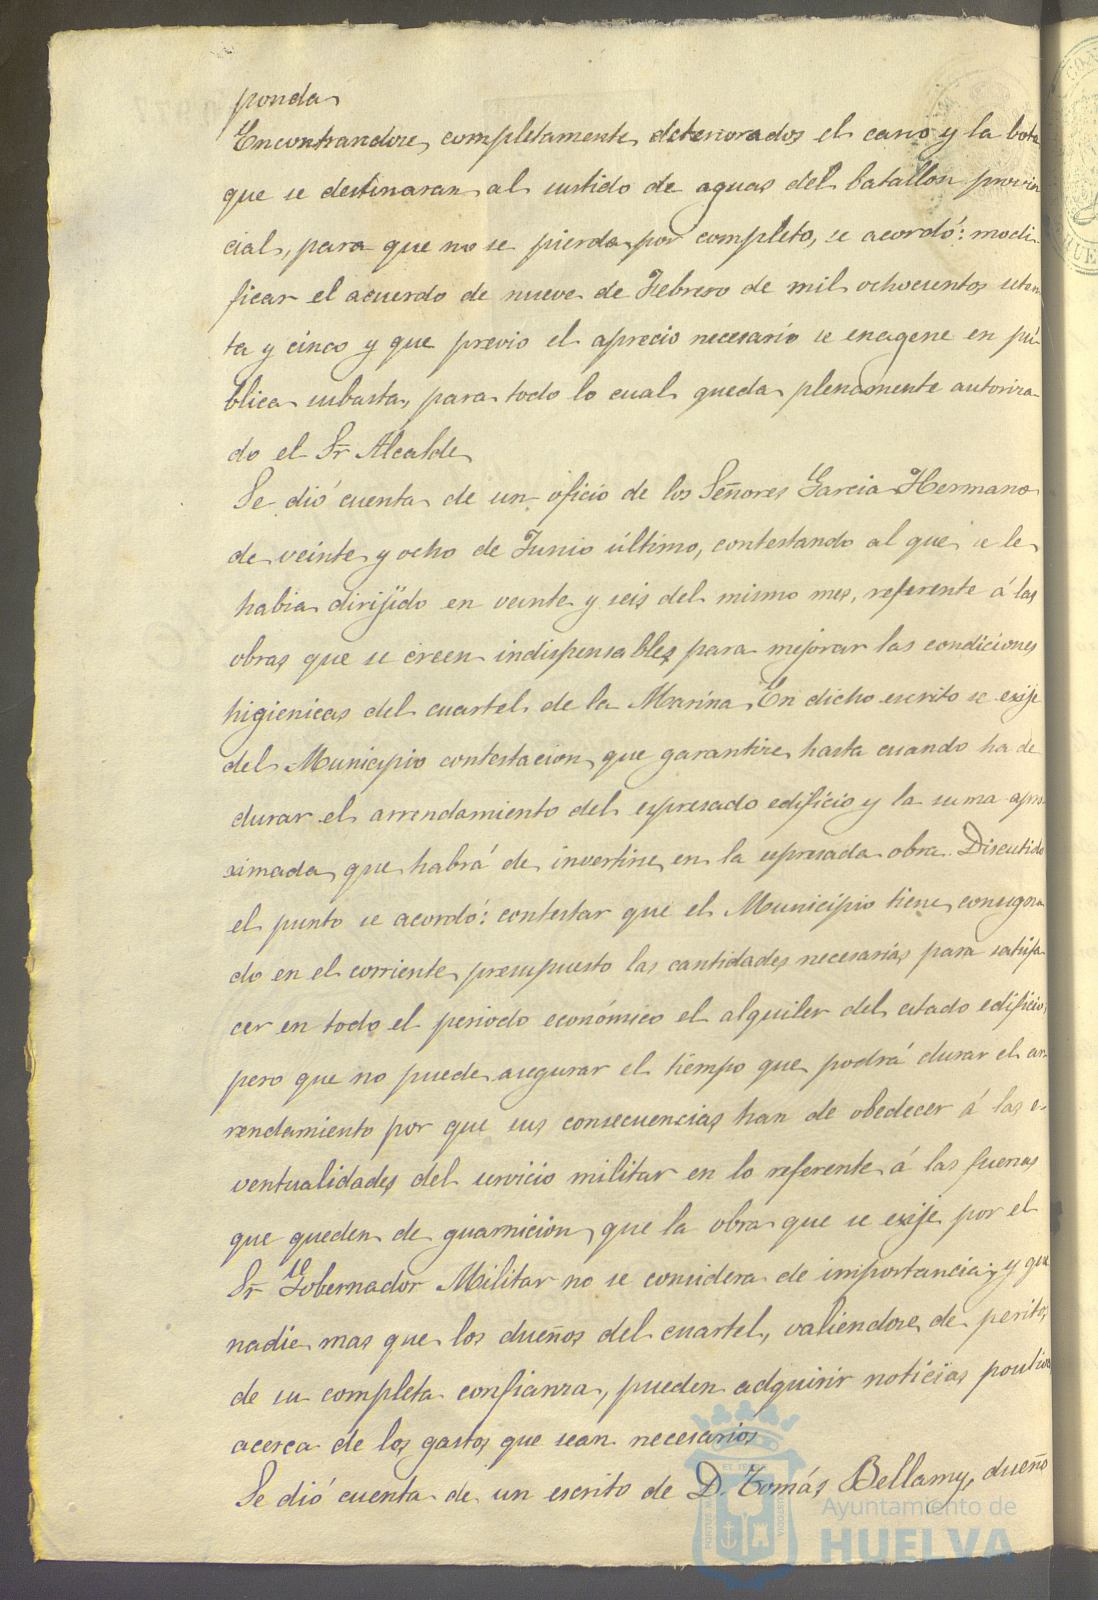 ponda
Encontrandose completamente deteriorados el carro y la bota
que se destinaran al surtido de aguas del batallon provin
cial, para que no se pierda por completo, se acordó: modi-
ficar el acuerdo de nueve de Febrero de mil ochocientos seten
ta y cinco y que previo el aprecio necesario se enagene en pú-
blica subasta, para todo lo cual queda plenamente autoriza-
do el Sr Alcalde
Se dió cuenta de un oficio de los Señores Garcia Hermano
de veinte y ocho de Junio último, contestando al que se le
habia dirijido en veinte y seis del mismo mes, referente á las
obras que se creen indispensables para mejorar las condiciones
higienicas del cuartel de la Marina. En dicho escrito se exije
del Municipio contestacion que garantice hasta cuando ha de
durar el arrendamiento del espresado edificio y la suma apro
ximada que habrá de invertirse en la espresada obra. Discutido
el punto se acordó: contestar que el Municipio tiene consigna
do en el corriente presupuesto las cantidades necesarias para satisfa
cer en todo el periodo económico el alquiler del citado edificio,
pero que no puede asegurar el tiempo que podrá durar el ar-
rendamiento por que sus consecuencias han de obedecer á las e-
ventualidades del servicio militar en lo referente á las fuerzas
que queden de guarnicion, que la obra que se exije por el
Sr Gobernador Militar no se considera de importancia y que
nadie mas que los dueños del cuartel, valiendose de peritos
de su completa confianza, pueden adquirir noticias positivas
acerca de los gastos que sean necesarios
Se dió cuenta de un escrito de D. Tomás Bellamy, dueño
Ayuntamiento de
HUELVA